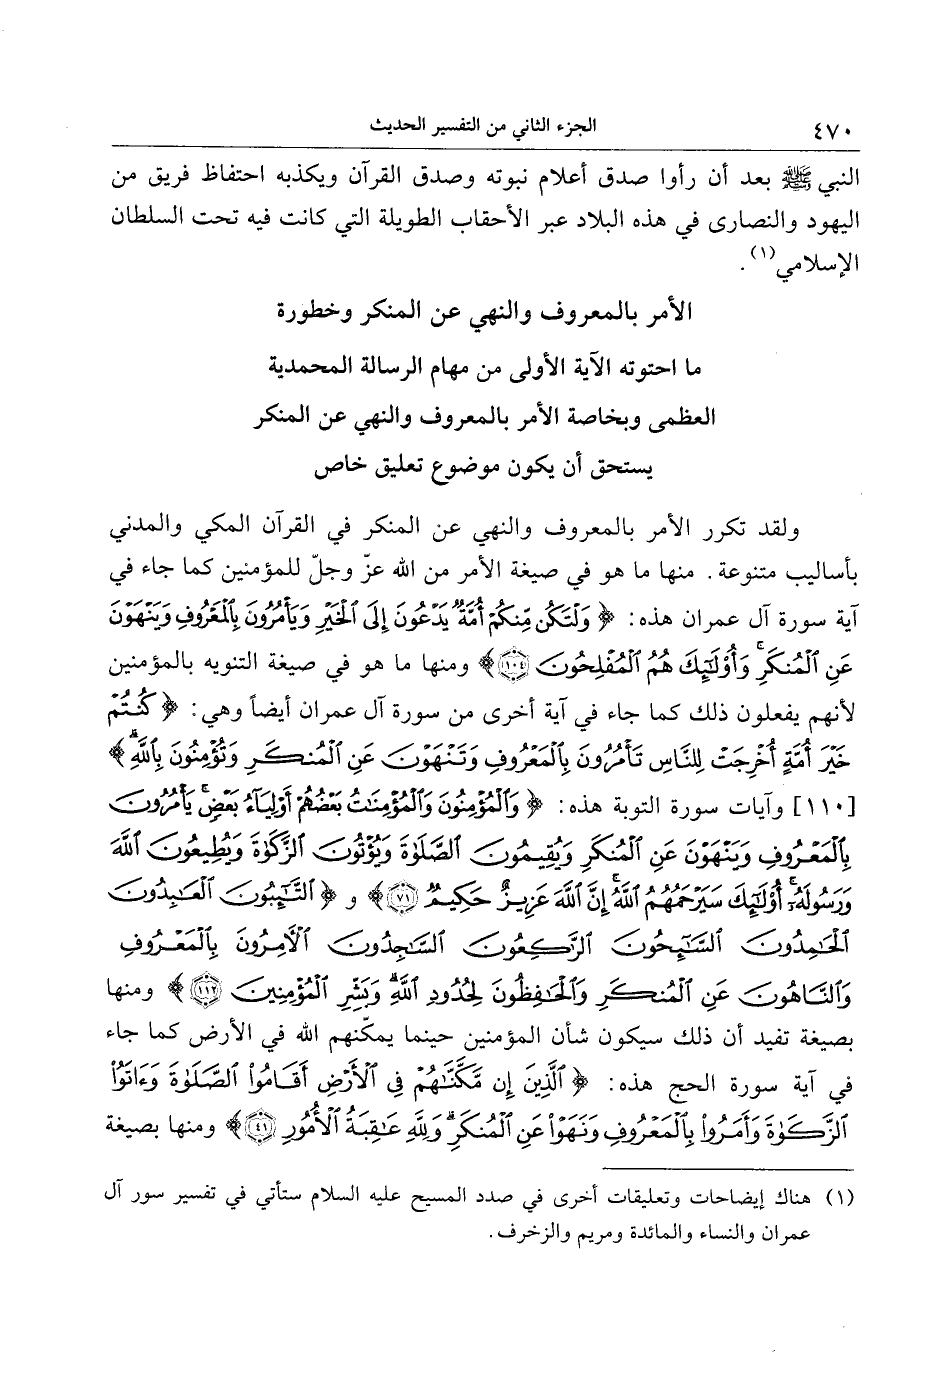 ٤٧٠ الجزء الثاني من التفسير الحديث
النبي ﷺ بعد أن رأوا صدق أعلام نبوته وصدق القرآن ويكذبه احتفاظ فريق من
اليهود والنصارى في هذه البلاد عبر الأحقاب الطويلة التي كانت فيه تحت السلطان
الإسلامي(١).
الأمر بالمعروف والنهي عن المنكر وخطورة
ما احتوته الآية الأولى من مهام الرسالة المحمدية
العظمى وبخاصة الأمر بالمعروف والنهي عن المنكر
يستحق أن يكون موضوع تعليق خاص
ولقد تكرر الأمر بالمعروف والنهي عن المنكر في القرآن المكي والمدني
بأساليب متنوعة. منها ما هو في صيغة الأمر من الله عزّ وجلّ للمؤمنين كما جاء في
آية سورة آل عمران هذه: ﴿ وَلْتَكُن مِّنكُمْ أُمَّةٌ يَدْعُونَ إِلَى الْخَيْرِ وَيَأْمُرُونَ بِالْمَعْرُوفِ وَيَنْهَوْنَ
عَنِ الْمُنكَرِ ۚ وَأُوْلَٰٓئِكَ هُمُ الْمُفْلِحُونَ ١٠٤﴾ ومنها ما هو في صيغة التنويه بالمؤمنين
لأنهم يفعلون ذلك كما جاء في آية أخرى من سورة آل عمران أيضاً وهي: ﴿ كُنتُمْ
خَيْرَ أُمَّةٍ أُخْرِجَتْ لِلنَّاسِ تَأْمُرُونَ بِالْمَعْرُوفِ وَتَنْهَوْنَ عَنِ الْمُنكَرِ وَتُؤْمِنُونَ بِاللَّهِ ۗ ﴾
[١١٠] وآيات سورة التوبة هذه: ﴿ وَالْمُؤْمِنُونَ وَالْمُؤْمِنَٰتُ بَعْضُهُمْ أَوْلِيَآءُ بَعْضٍ ۚ يَأْمُرُونَ
بِالْمَعْرُوفِ وَيَنْهَوْنَ عَنِ الْمُنكَرِ وَيُقِيمُونَ الصَّلَوٰةَ وَيُؤْتُونَ الزَّكَوٰةَ وَيُطِيعُونَ اللَّهَ
وَرَسُولَهُۥٓ ۚ أُوْلَٰٓئِكَ سَيَرْحَمُهُمُ اللَّهُ ۗ إِنَّ اللَّهَ عَزِيزٌ حَكِيمٌ ٧١﴾ و ﴿ التَّٰٓئِبُونَ الْعَٰبِدُونَ
الْحَٰمِدُونَ السَّٰٓئِحُونَ الرَّٰكِعُونَ السَّٰجِدُونَ الْآمِرُونَ بِالْمَعْرُوفِ
وَالنَّاهُونَ عَنِ الْمُنكَرِ وَالْحَٰفِظُونَ لِحُدُودِ اللَّهِ ۗ وَبَشِّرِ الْمُؤْمِنِينَ ١١٢﴾ ومنها
بصيغة تفيد أن ذلك سيكون شأن المؤمنين حينما يمكّنهم الله في الأرض كما جاء
في آية سورة الحج هذه: ﴿ الَّذِينَ إِن مَّكَّنَّٰهُمْ فِي الْأَرْضِ أَقَامُواْ الصَّلَوٰةَ وَءَاتَوُاْ
الزَّكَوٰةَ وَأَمَرُواْ بِالْمَعْرُوفِ وَنَهَوْاْ عَنِ الْمُنكَرِ ۗ وَلِلَّهِ عَٰقِبَةُ الْأُمُورِ ٤١﴾ ومنها بصيغة
(١) هناك إيضاحات وتعليقات أخرى في صدد المسيح عليه السلام ستأتي في تفسير سور آل
عمران والنساء والمائدة ومريم والزخرف.